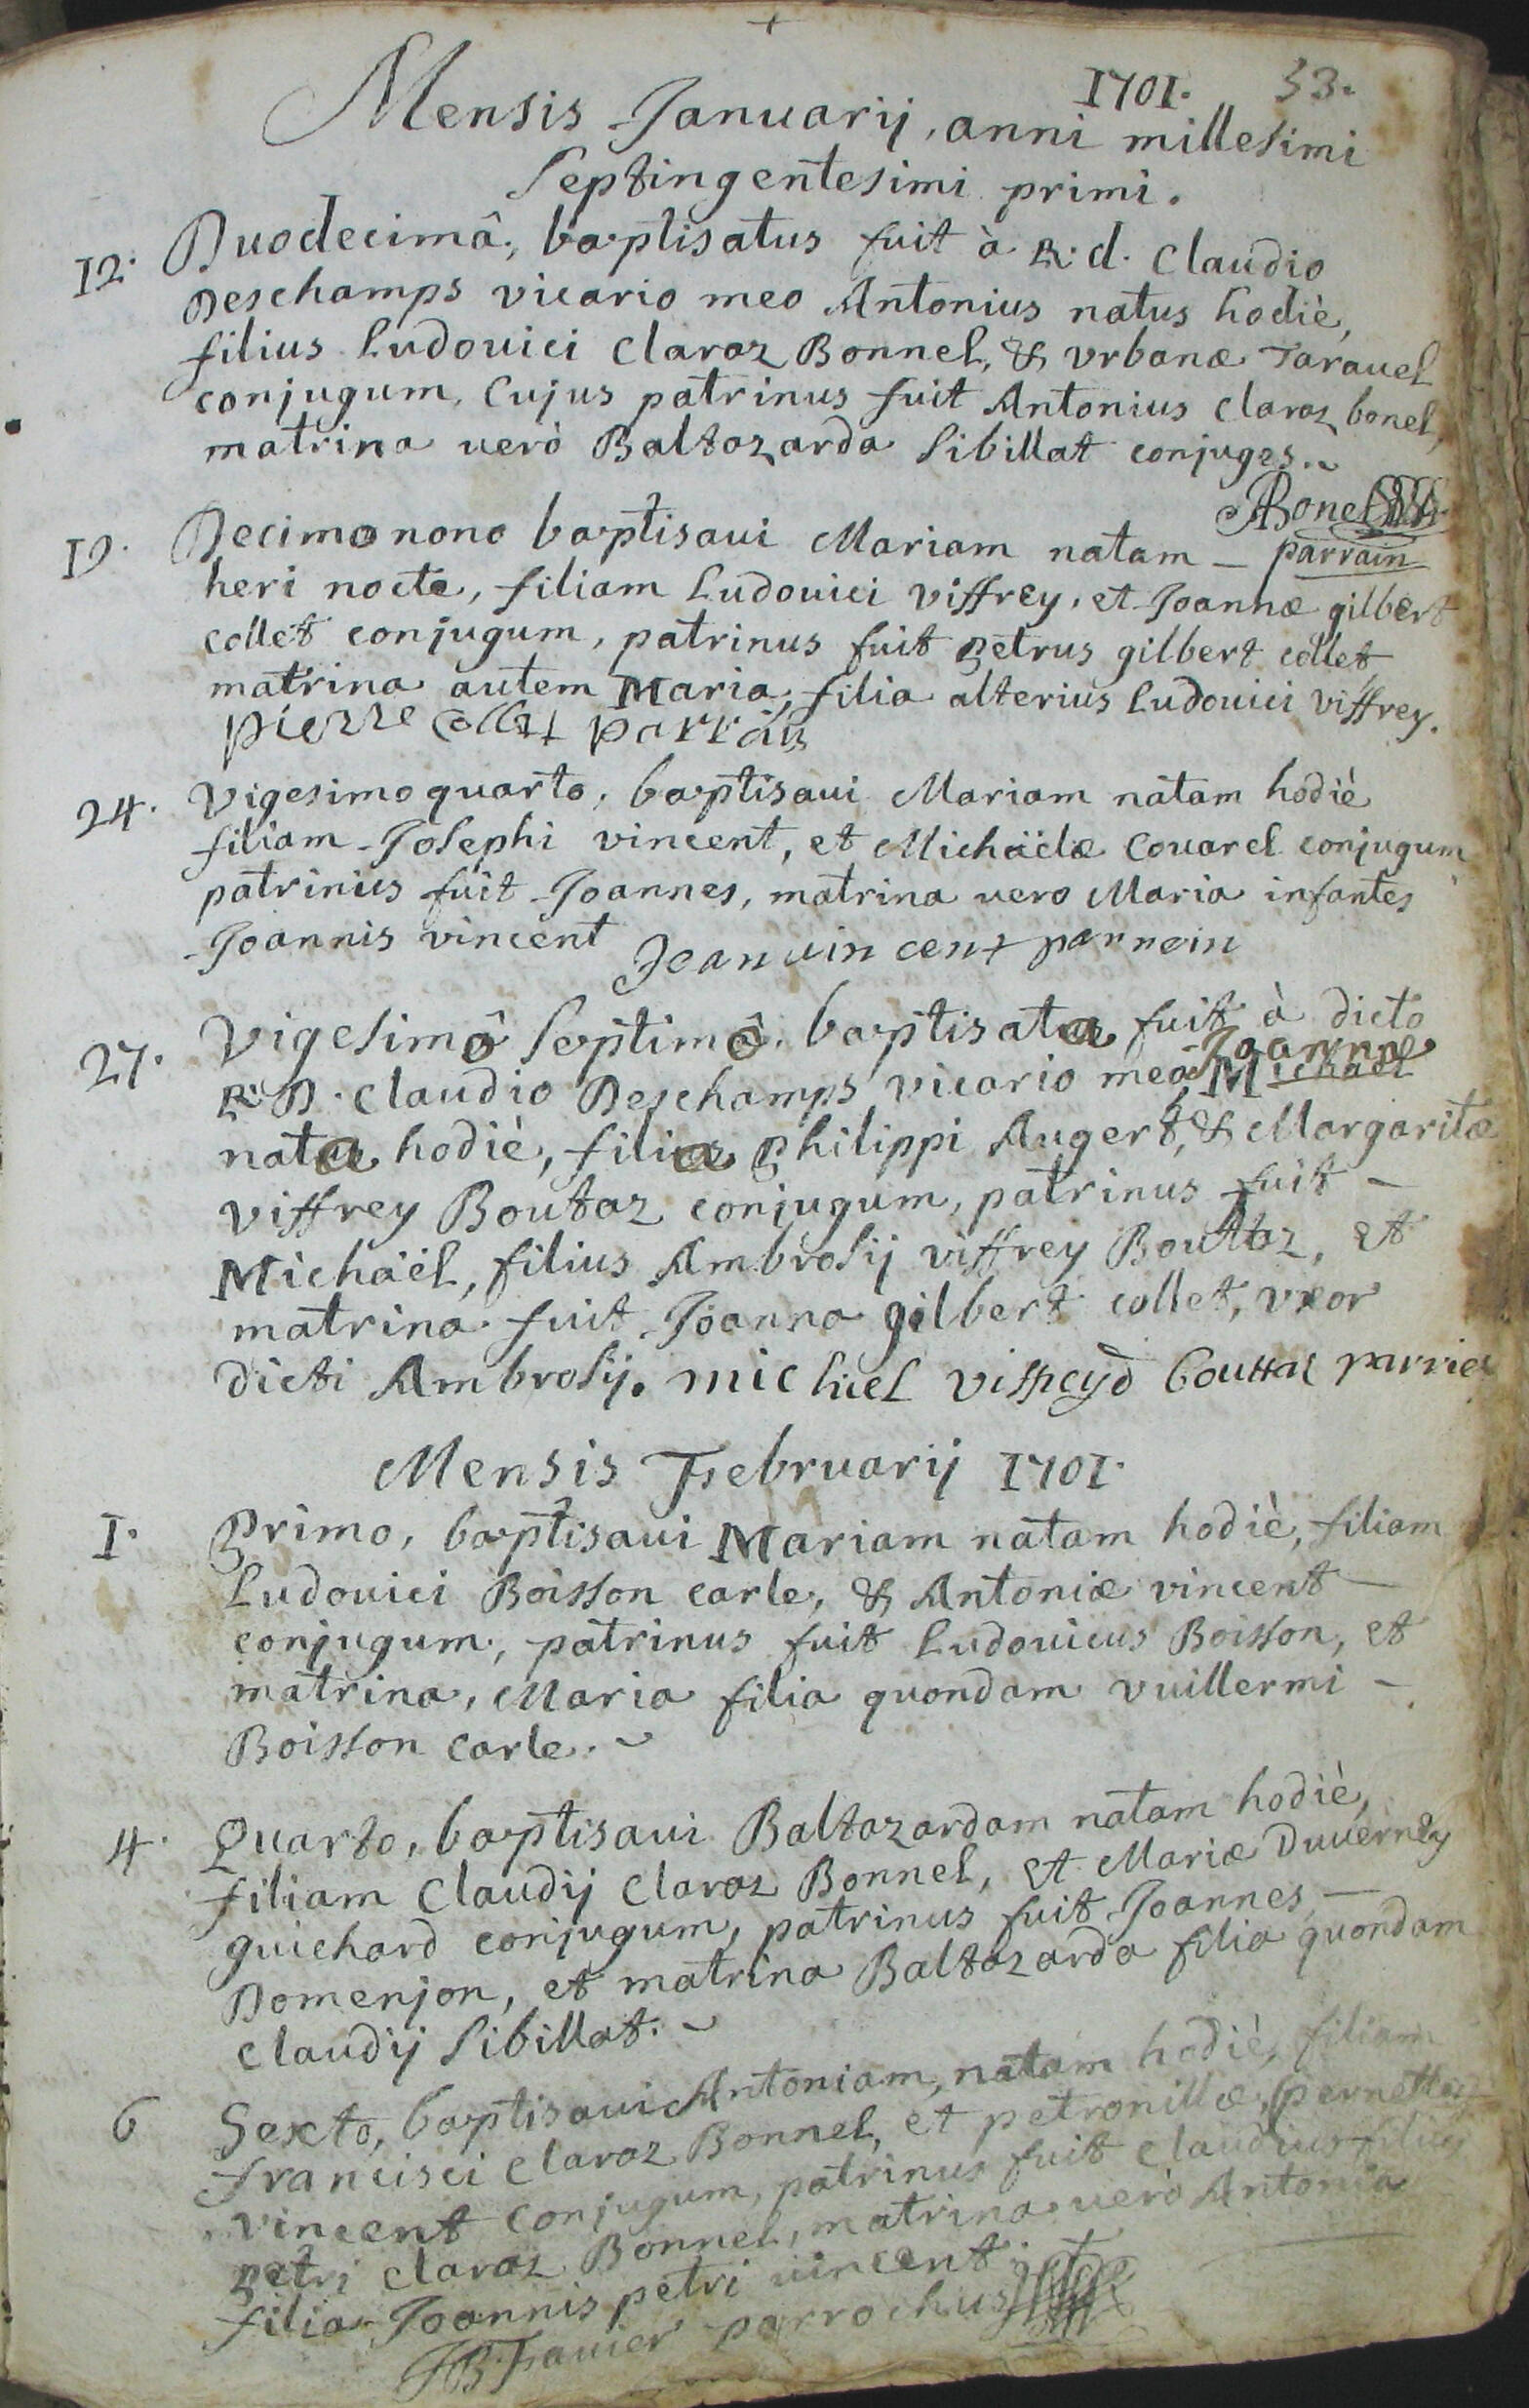 +
1701. 33.
Mensis Januarij, anni millesimi
septingentesimi primi.
12. Duodecimâ, baptisatus fuit à R.d. Claudio
Deschamps vicario meo Antonius natus hodiè,
filius Ludovici Claraz Bonnel, & vrbanæ Tarauel
conjugum, Cujus patrinus fuit Antonius Claraz bonel,
matrina uerò Baltazarda Sibillat conjuges.
ABonel
parrain
19. Decimo nono baptisaui Mariam natam –
heri nocte, filiam Ludouici Viffrey, et Joannæ gilbert
collet conjugum, patrinus fuit petrus gilbert collet,
matrina autem Maria, filia alterius Ludouici Viffrey.
pierre collet parrain
24. Vigesimo quarto, baptisaui Mariam natam hodiè
filiam Josephi vincent, et Michaëlæ Couarel conjugum
patrinus fuit Joannes, matrina uero Maria infantes
Joannis vincent
Jean uin cent parrein
27. Vigesimâ septimâ, baptisata fuit à dicto
Joanna
R.D. Claudio Deschamps vicario meo Michaël
nata hodiè, filia philippi Augert, & Margaritæ
viffrey Boutaz conjugum, patrinus fuit –
Michaël, filius Ambrosij viffrey Bouttaz, et
matrina fuit Joanna gilbert collet, vxor
dicti Ambrosij. michel viffreyd bouttaz
Mensis Februarij 1701.
1. Primo, baptisaui Mariam natam hodiè, filiam
Ludouici Boisson carle, & Antoniæ vincent –
conjugum, patrinus fuit Ludouicus Boisson, et
matrina, Maria filia quondam vuillermi –
Boisson carle.
4. Quarto, baptisaui Baltazardam natam hodiè,
filiam Claudij Claraz Bonnel, et Mariæ Duuerney
guichard conjugum, patrinus fuit Joannes –
Domenjon, et matrina Baltazarda filia quondam
Claudij Sibillat.
6 Sexto, baptisaui Antoniam, natam hodiè, filiam
francisci Claraz Bonnel, et petronillæ, pernettaz
vincent conjugum, patrinus fuit Claudius filius
petri claraz Bonnel, matrina uerò Antonia
filia Joannis petri uincent.
JB Fauier parrochus